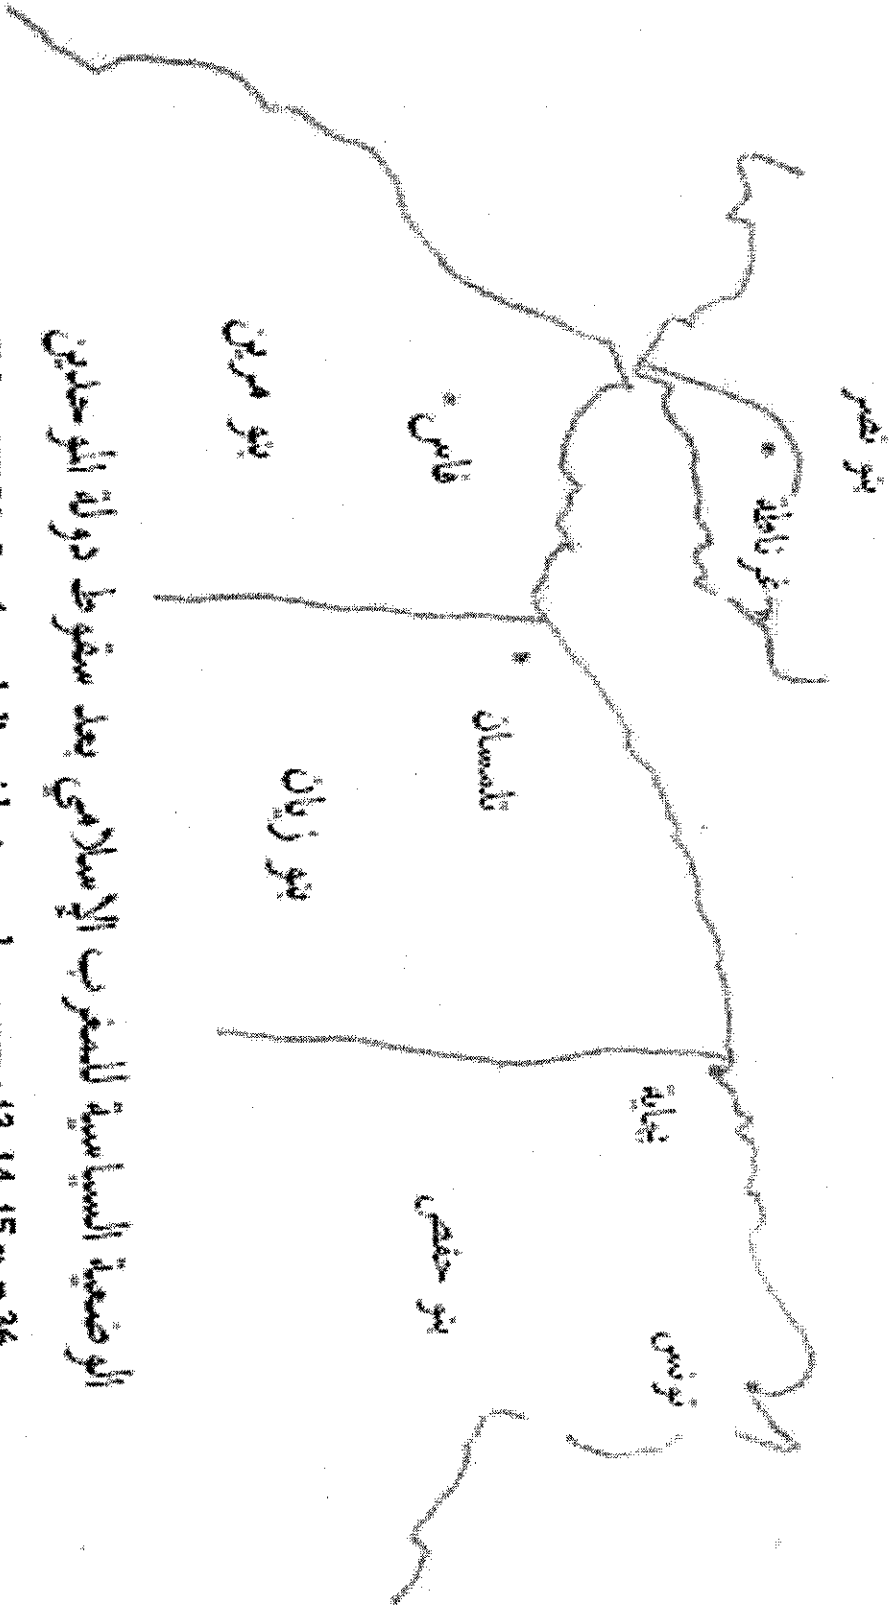 بنو نصر
غرناطة
فاس
بنو مرين
تلمسان
بنو زيان
بجاية
بنو حفص
تونس
الوضعية السياسية للمغرب الإسلامي بعد سقوط دولة الموحدين